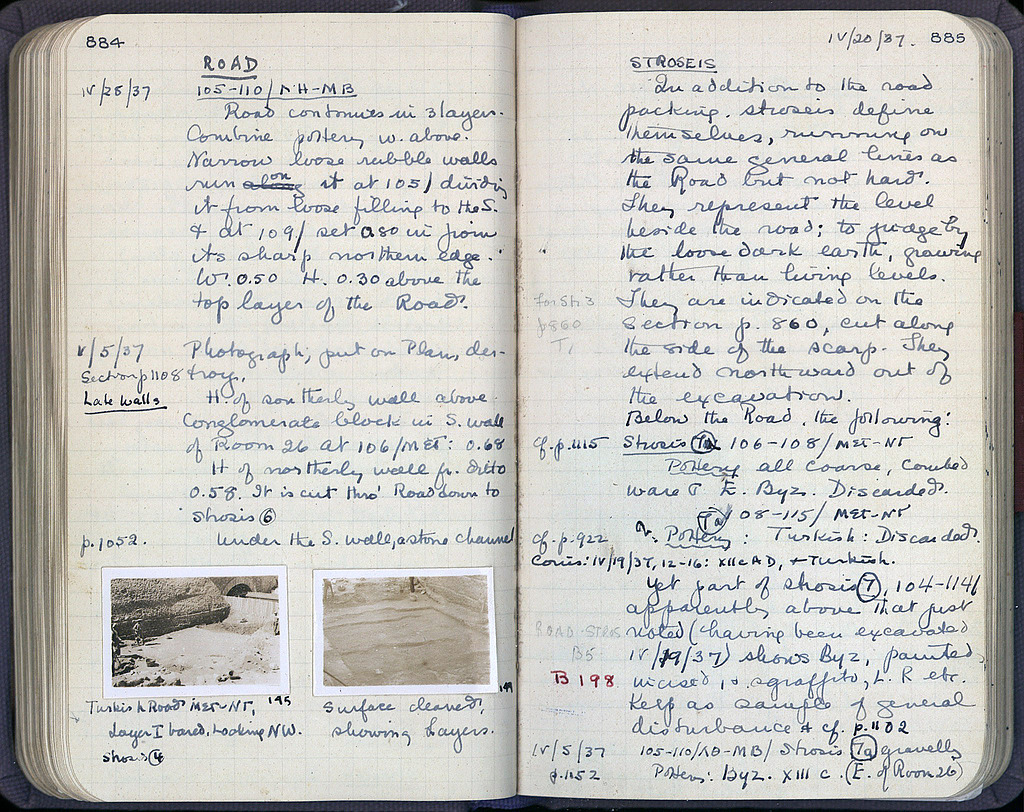 884
ROAD
IV/28/37 105-110/ΛH-MB
Road continues in 3 layers.
Combine pottery w. above.
Narrow loose rubble walls
run along on it at 105/ dividing
it from loose filling to the S.
& at 109/ set 0.80 in from
its sharp northern edge.
W. 0.50 H. 0.30 above the
top layer of the Road.
V/5/37 Photograph, put on Plan, des-
Section p 1108 troy.
Late Walls H. of southerly wall above
Conglomerate block in S. wall
of Room 26 at 106/ΜΕΤ: 0.68
H of northerly wall fr. ditto
0.58. It is cut thro' Road down to
Strosis 6
p. 1052. Under the S. wall, a stone channel
195
Turkish Road ΜΕΤ-ΝΤ,
Layer I bared, looking NW.
Strosis 4
Surface cleared,
showing Layers.
IV/20/37. 885
STROSEIS
In addition to the road
packing, stroseis define
themselves, running on
the same general lines as
the Road but not hard.
They represent the level
beside the road; to judge by
the loose dark earth, growing
rather than living levels.
for Str 3 They are indicated on the
p860 Section p. 860, cut along
the side of the scarp. They
extend northward out of
the excavation.
Below the Road, the following:
cf. p. 1115 Strosis 7a 106-108/ΜΕΤ-ΝΤ
Pottery all coarse, combed
ware & E. Byz. Discarded.
7a 108-115/ΜΕΤ-ΝΤ
cf. p. 922 Pottery: Turkish: Discarded.
Coins: IV/19/37, 12-16: XII c AD, + Turkish.
Yet part of strosis 7, 104-114/
apparently above that just
ROAD STROS noted (having been excavated
B5 IV/19/37) shows Byz, painted,
B 198 incised, sgraffito, L. R etc.
Keep as sample of general
disturbance & cf. p. 1102
IV/5/37 105-110/ΛΘ-MB/ Strosis 7a gravelly
p. 1052 Pottery: Byz. XIII c. (E. of Room 26)